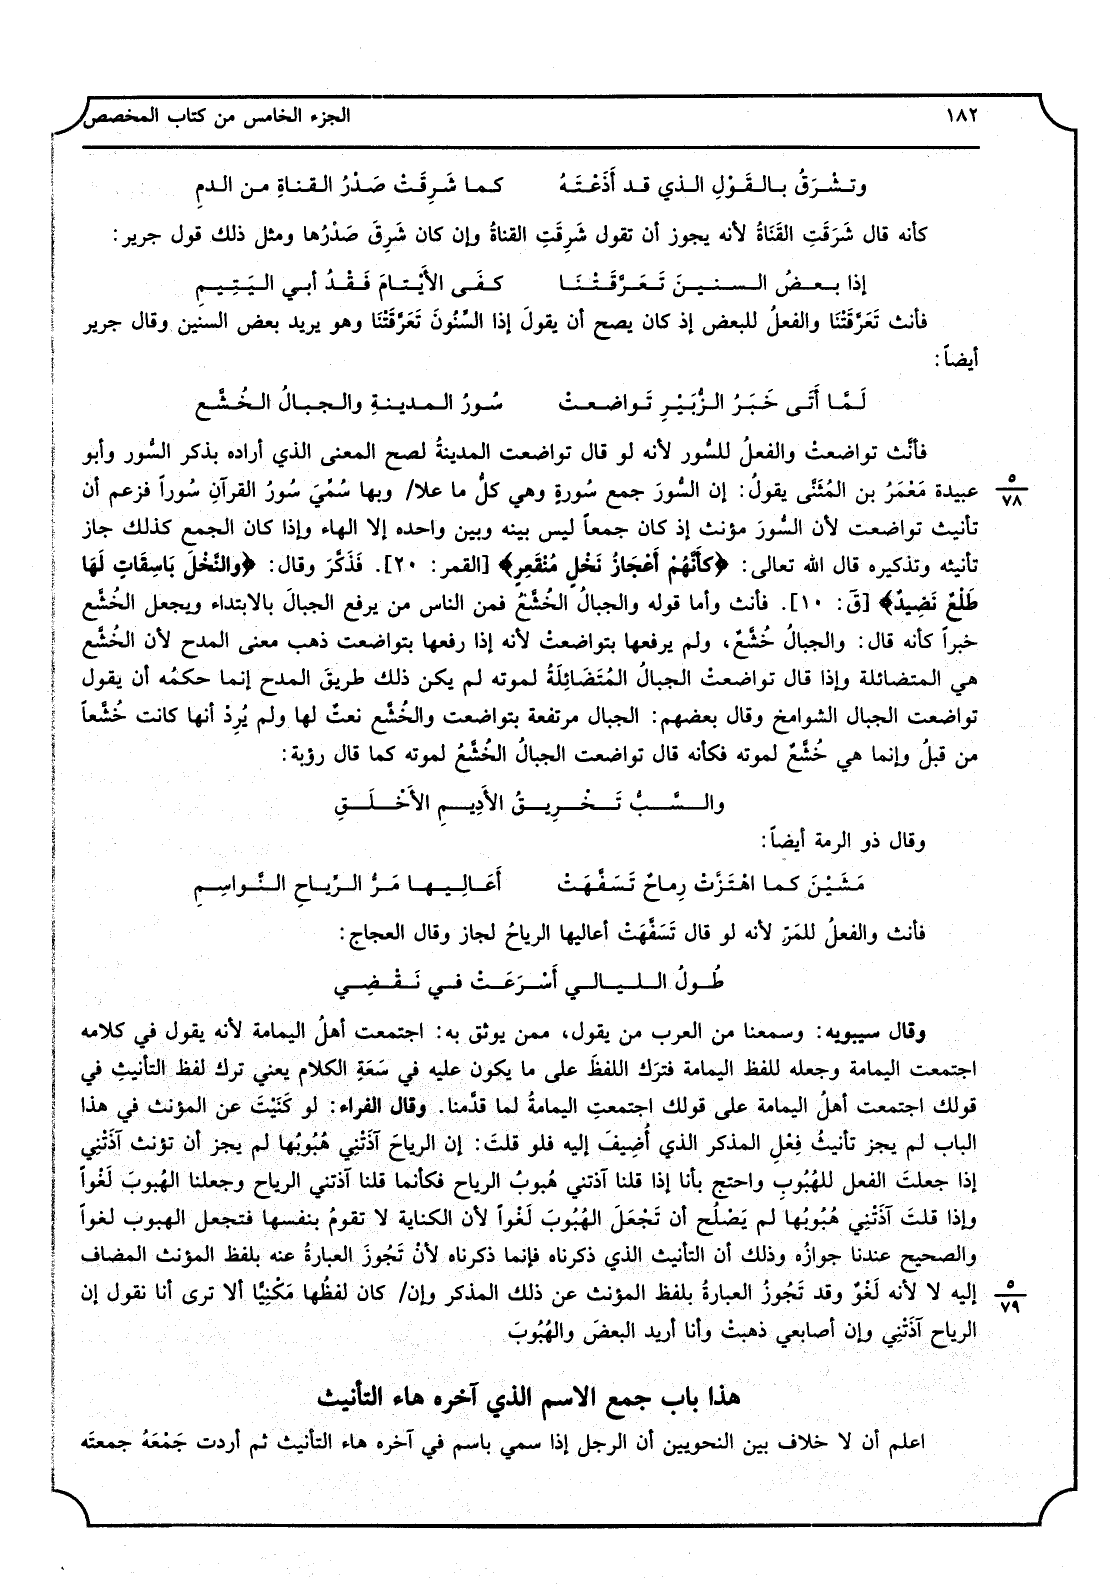 ١٨٢ الجزء الخامس من كتاب المخصص
وتشْرَقُ بالقَوْلِ الذي قد أَذَعْتَهُ كما شَرِقَتْ صَدْرُ القناةِ من الدمِ
كأنه قال شَرَقَتِ القَنَاةُ لأنه يجوز أن تقول شَرِقَتِ القناةُ وإن كان شَرِقَ صَدْرُها ومثل ذلك قول جرير:
إذا بعضُ السنينَ تَعَرَّقَتْنَا كفَى الأَيْتامَ فَقْدُ أبي اليَتِيمِ
فأنث تَعَرَّقَتْنَا والفعلُ للبعض إذ كان يصح أن يقولَ إذا السِّنُونَ تَعَرَّقَتْنَا وهو يريد بعض السنين وقال جرير
أيضاً:
لَمَّا أَتَى خَبَرُ الزُّبَيْرِ تَواضعتْ سُورُ المدينةِ والجبالُ الخُشَّع
فأنَّث تواضعتْ والفعلُ للسُّور لأنه لو قال تواضعت المدينةُ لصح المعنى الذي أراده بذكر السُّور وأبو
عبيدة مَعْمَرُ بن المُثَنَّى يقولُ: إن السُّورَ جمع سُورةٍ وهي كلُّ ما علا/ وبها سُمِّيَ سُورُ القرآنِ سُوراً فزعم أن
٥
٧٨
تأنيث تواضعت لأن السُّورَ مؤنث إذ كان جمعاً ليس بينه وبين واحده إلا الهاء وإذا كان الجمع كذلك جاز
تأنيثه وتذكيره قال الله تعالى: ﴿كأَنَّهُمْ أَعْجَازُ نَخْلٍ مُنْقَعِرٍ﴾ [القمر: ٢٠]. فَذَكَّرَ وقال: ﴿والنَّخْلَ بَاسِقَاتٍ لَهَا
طَلْعٌ نَضِيدٌ﴾ [قَ: ١٠]. فأنث وأما قوله والجبالُ الخُشَّعُ فمن الناس من يرفع الجبالَ بالابتداء ويجعل الخُشَّع
خبراً كأنه قال: والجبالُ خُشَّعٌ، ولم يرفعها بتواضعتْ لأنه إذا رفعها بتواضعت ذهب معنى المدح لأن الخُشَّع
هي المتضائلة وإذا قال تواضعتْ الجبالُ المُتَضَائِلَةُ لموته لم يكن ذلك طريقَ المدح إنما حكمُه أن يقول
تواضعت الجبال الشوامخ وقال بعضهم: الجبال مرتفعة بتواضعت والخُشَّع نعتٌ لها ولم يُرِدْ أنها كانت خُشَّعاً
من قبلُ وإنما هي خُشَّعٌ لموته فكأنه قال تواضعت الجبالُ الخُشَّعُ لموته كما قال رؤبة:
والسَّبُّ تَخْرِيقُ الأَدِيمِ الأَخْلَقِ
وقال ذو الرمة أيضاً:
مَشَيْنَ كما اهْتَزَّتْ رِماحٌ تَسَفَّهَتْ أَعَالِيها مَرُّ الرِّياحِ النَّواسِمِ
فأنث والفعلُ للمَرّ لأنه لو قال تَسَفَّهَتْ أعاليها الرياحُ لجاز وقال العجاج:
طُولُ الليالي أَسْرَعَتْ في نَقْضِي
وقال سيبويه: وسمعنا من العرب من يقول، ممن يوثق به: اجتمعت أهلُ اليمامة لأنه يقول في كلامه
اجتمعت اليمامة وجعله للفظ اليمامة فترَك اللفظَ على ما يكون عليه في سَعَةِ الكلام يعني ترك لفظ التأنيثِ في
قولك اجتمعت أهلُ اليمامة على قولك اجتمعتِ اليمامةُ لما قدَّمنا. وقال الفراء: لو كَنَيْتَ عن المؤنث في هذا
الباب لم يجز تأنيثُ فِعْلِ المذكر الذي أُضِيفَ إليه فلو قلتَ: إن الرياحَ آذَتْنِي هُبُوبُها لم يجز أن تؤنث آذَتْنِي
إذا جعلتَ الفعل للهُبُوبِ واحتج بأنا إذا قلنا آذتني هُبوبُ الرياح فكأنما قلنا آذتني الرياح وجعلنا الهُبوبَ لَغْواً
وإذا قلتَ آذَتْنِي هُبُوبُها لم يَصْلُح أن تَجْعَلَ الهُبُوبَ لَغْواً لأن الكناية لا تقومُ بنفسها فتجعل الهبوب لغواً
والصحيح عندنا جوازُه وذلك أن التأنيث الذي ذكرناه فإنما ذكرناه لأنْ تَجُوزَ العبارةُ عنه بلفظ المؤنث المضاف
إليه لا لأنه لَغْوٌ وقد تَجُوزُ العبارةُ بلفظ المؤنث عن ذلك المذكر وإن/ كان لفظُها مَكْنِيًّا ألا ترى أنا نقول إن
٥
٧٩
الرياح آذَتْنِي وإن أصابعي ذهبتْ وأنا أريد البعضَ والهُبُوبَ
هذا باب جمع الاسم الذي آخره هاء التأنيث
اعلم أن لا خلاف بين النحويين أن الرجل إذا سمي باسم في آخره هاء التأنيث ثم أردت جَمْعَهُ جمعتَه